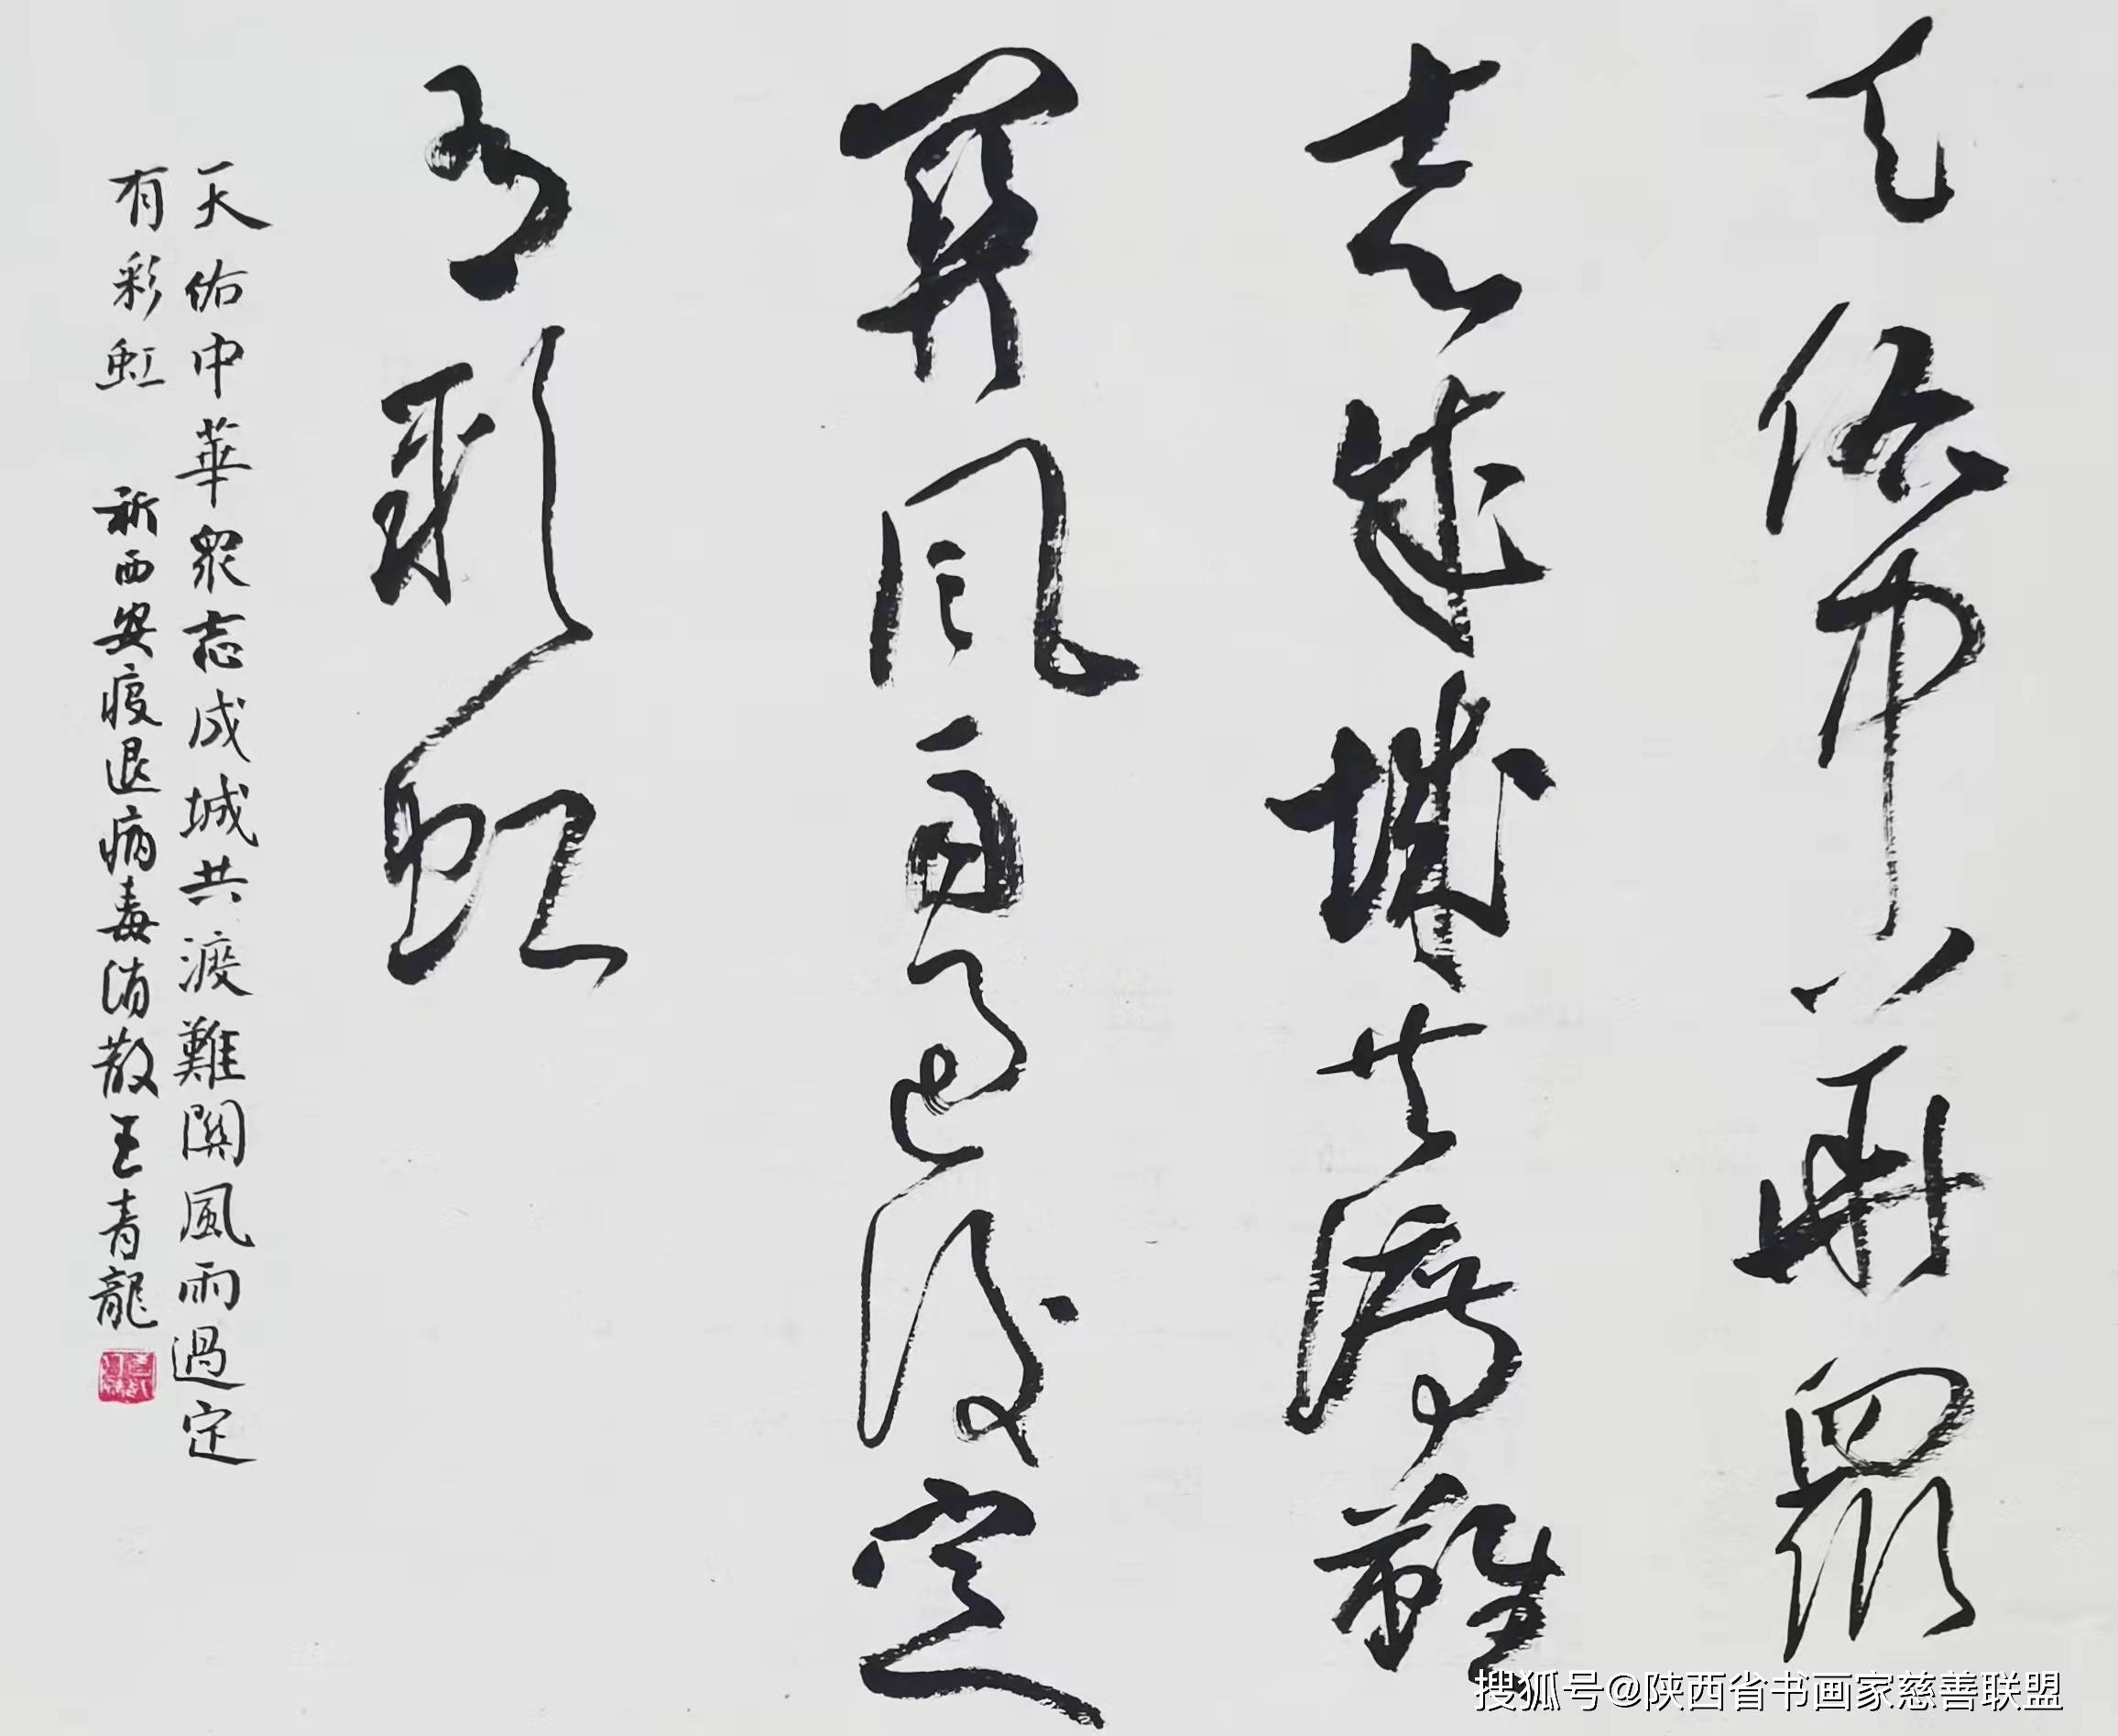 天佑中華眾
志成城共渡難
關風雨過後定
有彩虹
天佑中華眾志成城共渡難關風雨過定
有彩虹 祈西安疫退病毒消散王青龍
搜狐号@陕西省书画家慈善联盟